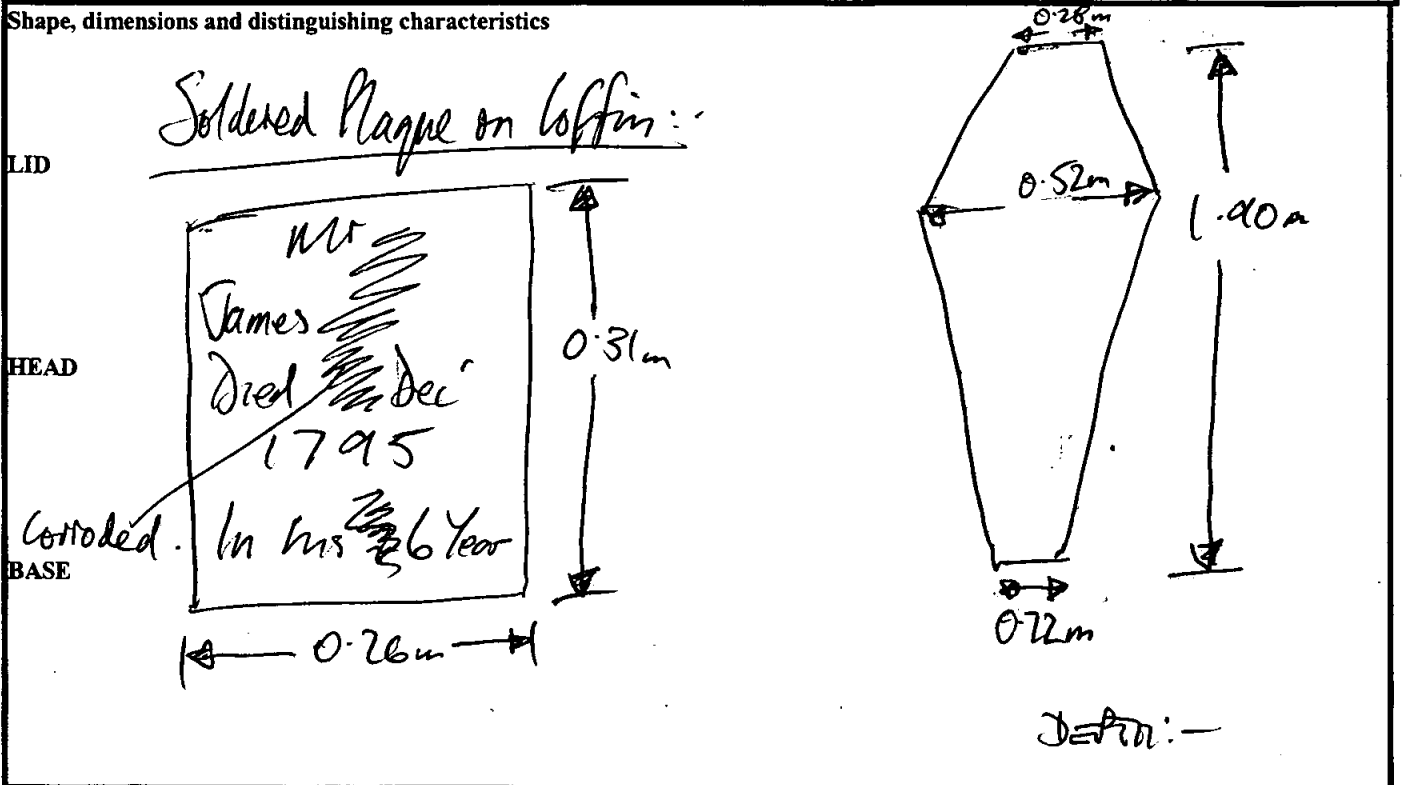 Shape, dimensions and distinguishing characteristics
Soldered Plaque on Coffin:-
LID
HEAD
BASE
Mr
James
Died Dec
1795
In his 6 Year
Corroded.
0.31m
0.26m
0.28m
0.52m
1.90m
0.22m
DEPTH:-